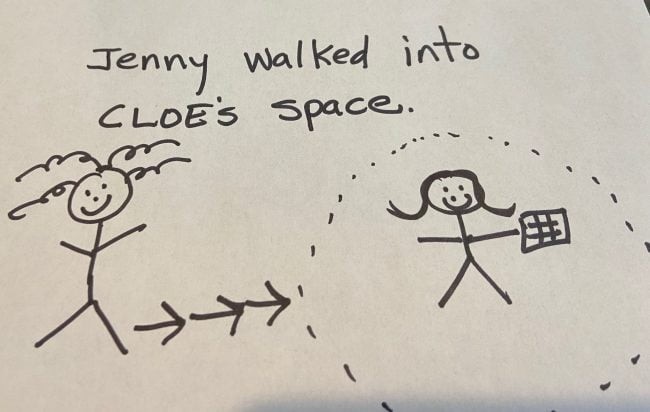 Jenny walked into
CLOE's space.